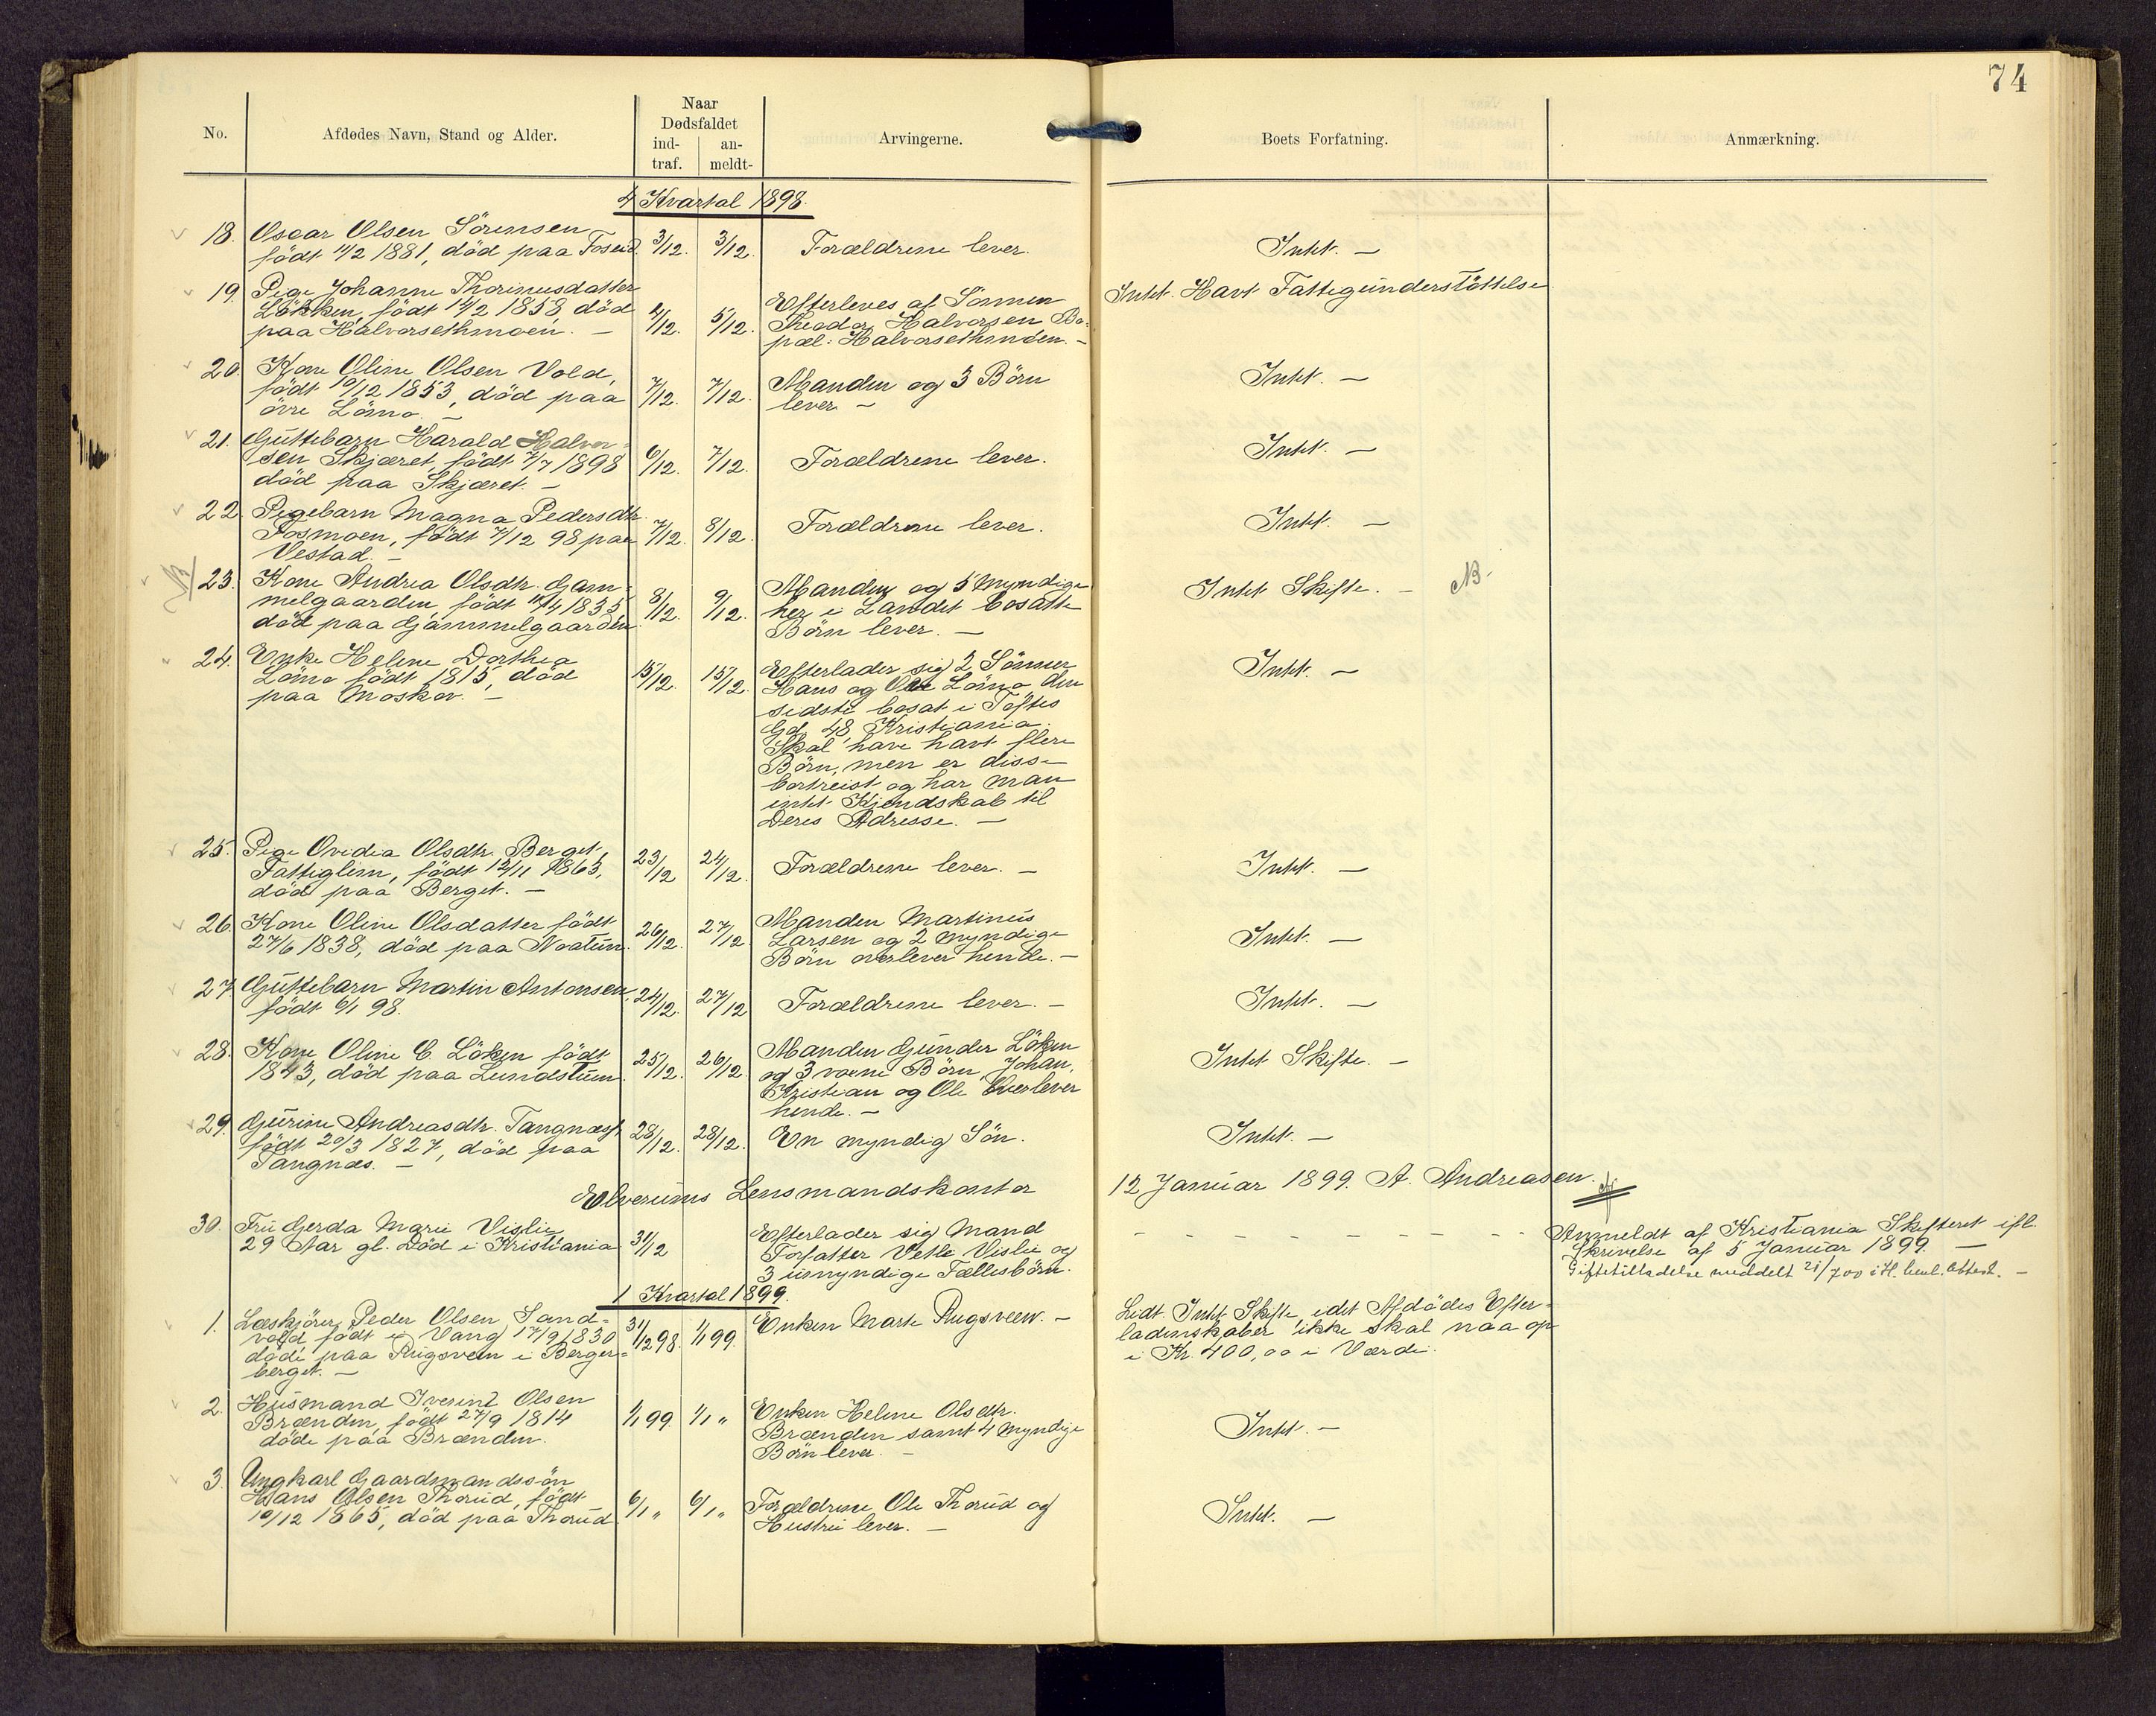 74
No.
Afdødes Navn, Stand og Alder.
Naar
Dødsfaldet
ind-
traf.
an-
meldt-
Arvingerne.
Boets Forfatning.
Anmærkning.
4 Kvartal 1898.
18. Oscar Olsen Sörensen
födt 11/2 1881, död paa Fosend. 3/12. 3/12. Forældrene lever. Intet. —
19. Pige Johanne Thorinusdatter
Lökken, födt 14/2 1858, död
paa Halvorsethmoen. — 4/12. 5/12.
Efterleves af Sönnen
Theodor Halvorsen Bo-
pæl: Halvorsethmoen. —
Intet. Havt Fattigunderstöttelse
20. Kone Oline Olsen Vold,
födt 10/12 1853, död paa
övre Lömo. — 7/12. 7/12.
Manden og 3 Börn
lever. —
Intet. —
21. Guttebarn Harald Halvor-
sen Skjæret, födt 7/7 1898
död paa Skjæret. — 6/12. 7/12. Forældrene lever. Intet. —
22. Pigebarn Magna Pedersdtr.
Fosmoen, födt 7/12 98 paa
Vestad. — 7/12. 8/12. Forældrene lever. Intet. —
NB 23. Kone Andrea Olsdtr. Gam-
melgaarden, födt 11/4 1835
död paa Gammelgaarden. 8/12. 9/12.
Manden og 5 myndige
her i Landet bosatte
Börn lever. —
Intet Skifte. — NB.
24. Enke Helene Dorthea
Lömo födt 1815, död
paa Moskov. — 15/12. 15/12.
Efterlader sig 2 Sönner
Hans og Ole Lömo den
sidste bosat i Toftes
Gd. 48, Kristiania.
Skal have havt flere
Börn, men er disse
bortreist og har man
intet Kjendskab til
Deres Adresse. —
Intet. —
25. Pige Ovidia Olsdtr. Berget,
Fattiglem, födt 12/11 1863,
död paa Berget. — 23/12 24/12. Forældrene lever. — Intet. —
26. Kone Oline Olsdatter födt
27/6 1838, död paa Noatun. 26/12. 27/12
Manden Martinus
Larsen og 2 myndige
Börn overlever hende. —
Intet. —
27. Guttebarn Martin Antonsen,
födt 6/1 98. 24/12. 27/12 Forældrene lever. — Intet. —
28. Kone Oline E. Löken födt
1843, död paa Lundstuen. 25/12. 26/12.
Manden Gunder Löken
og 3 voxne Börn, Johan,
Kristian og Ole Overlever
hende. —
Intet Skifte. —
29. Gurine Andreasdtr. Tangnæs,
födt 20/3 1827, död paa
Tangnæs. — 28/12. 28/12. En myndig Sön. Intet. —
Elverums Lensmandskontor 12 Januar 1899. A. Andreasen.
30. Fru Gerda Marie Vislie
29 Aar gl. Död i Kristiania 31/12
Efterlader sig Mand
Forfatter Vetle Vislie og
3 umyndige Fællesbörn.
Anmeldt af Kristiania Skifteret ifl.
Skrivelse af 5 Januar 1899. —
Giftetilladelse meddelt 21/7 00 i H. Attest. —
1 Kvartal 1899.
1. Læskjörer Peder Olsen Sand-
vold, födt i Vang 17/9 1830
döde paa Rugsveen i Berger-
berget. — 31/12 98. 1/1 99.
Enken Marte Rugsveen. —
Lidt. Intet Skifte, idet Afdödes Efter-
ladenskaber ikke skal naa op
i Kr. 400,00 i Værdi.
2. Husmand Iverint Olsen
Brænden, födt 27/9 1814
döde paa Brænden. 1/1 99. 1/1 „
Enken Helene Olsdtr.
Brænden samt 4 myndige
Börn lever. —
Intet. —
3. Ungkarl Gaardmandssön
Hans Olsen Thorud, födt
10/12 1865, död paa Thorud. 6/1 „ 6/1 „
Forældrene Ole Thorud og
Hustru lever. —
Intet. —